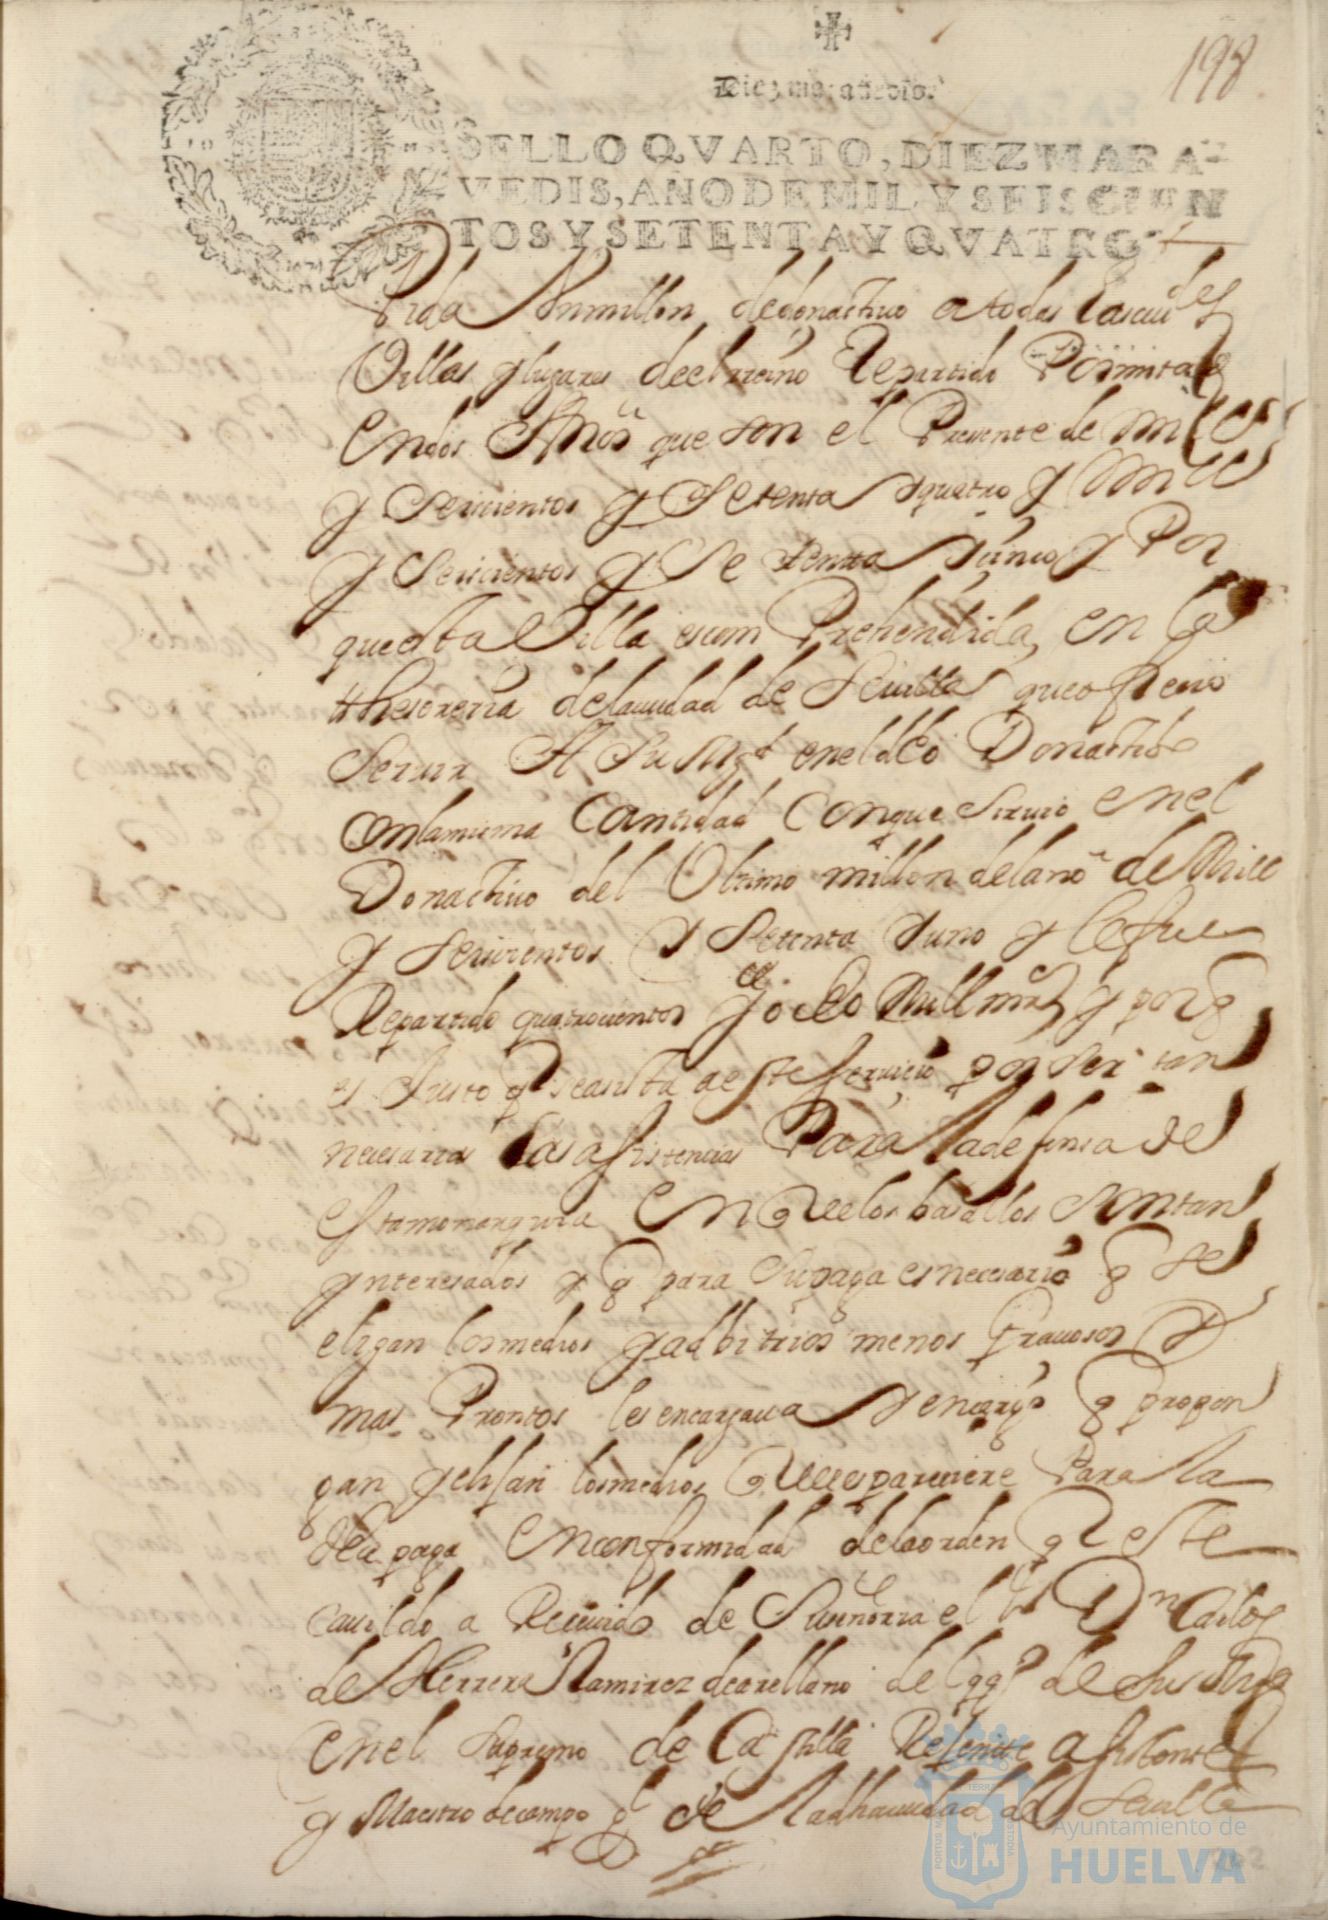 198
Diez marauedis.
SELLO QVARTO, DIEZ MARA-
VEDIS, AÑO DE MIL Y SEISCIEN
TOS Y SETENTA Y QVATRO
Pida Vn millon de donactiuo a todas las ciudes
Villas y lugares deel reino Repartido Por mitad
en dos Años que son el Presente de mill
y Seiscientos y Setenta y quatro y mill
y Seiscientos y Se tenta y cinco y Por
que esta Villa es com Prehendida en la
thesoreria de la ciudad de Seuilla que ofrecio
Seruir A Su Mgd en el dho Donactiuo
con la misma Cantidad Con que Siruio en el
Donactiuo del Vltimo millon del año de Mill
y Seiscientos y Setenta y uno y le fue
Repartido quatrocientos y ocho Mill mrs y por q
es Justo q se asista a este seruicio por ser tan
necesarias las asistencias Para la defensa de
esta monarquia en Que los basallos son tan
ynteresados y q para su paga es necesario q se
elijan los medios y adbitrios menos Grauosos y
mas Prontos les encargaua y encargo q propon
gan y elijan los medios Que les pareciere Para la
dha paga en conformidad de la orden q este
cauildo a Reciuido de Su señoria el Sr Dn Carlos
de Herrera Ramirez de arellano de el qqo de Su Mgd
en el Supremo de Castilla Asistente
y Maestro de campo gl de la dha ciudad de Seuilla
PORTUS MARIS
TERRAE
CUSTODIA
Ayuntamiento de
HUELVA